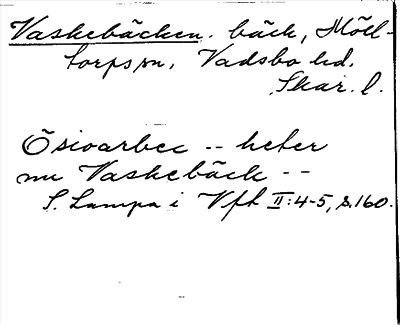 Vaskebäcken. bäck, Möll-
torps sn, Vadsbo hd.
Skar. l.
Ösioarbec -- heter
nu Vaskebäck --
S. Lampa i Vfh II:4-5, s.160.